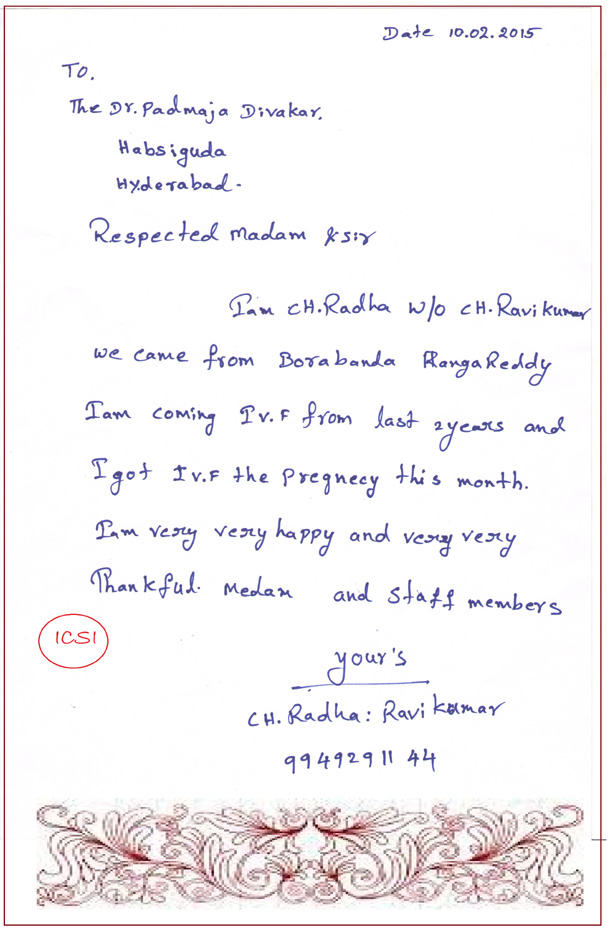 Date 10.02.2015
To.
The Dr. Padmaja Divakar.
Habsiguda
Hyderabad.
Respected Madam & sir
Iam CH.Radha w/o CH.Ravi kumar
we came from Borabanda RangaReddy
Iam coming I v.F from last 2years and
I got I v.F the pregnecy this month.
Iam very very happy and very very
Thankful. Medam and Staff members
ICSI
your's
CH. Radha: Ravi kumar
99492911 44